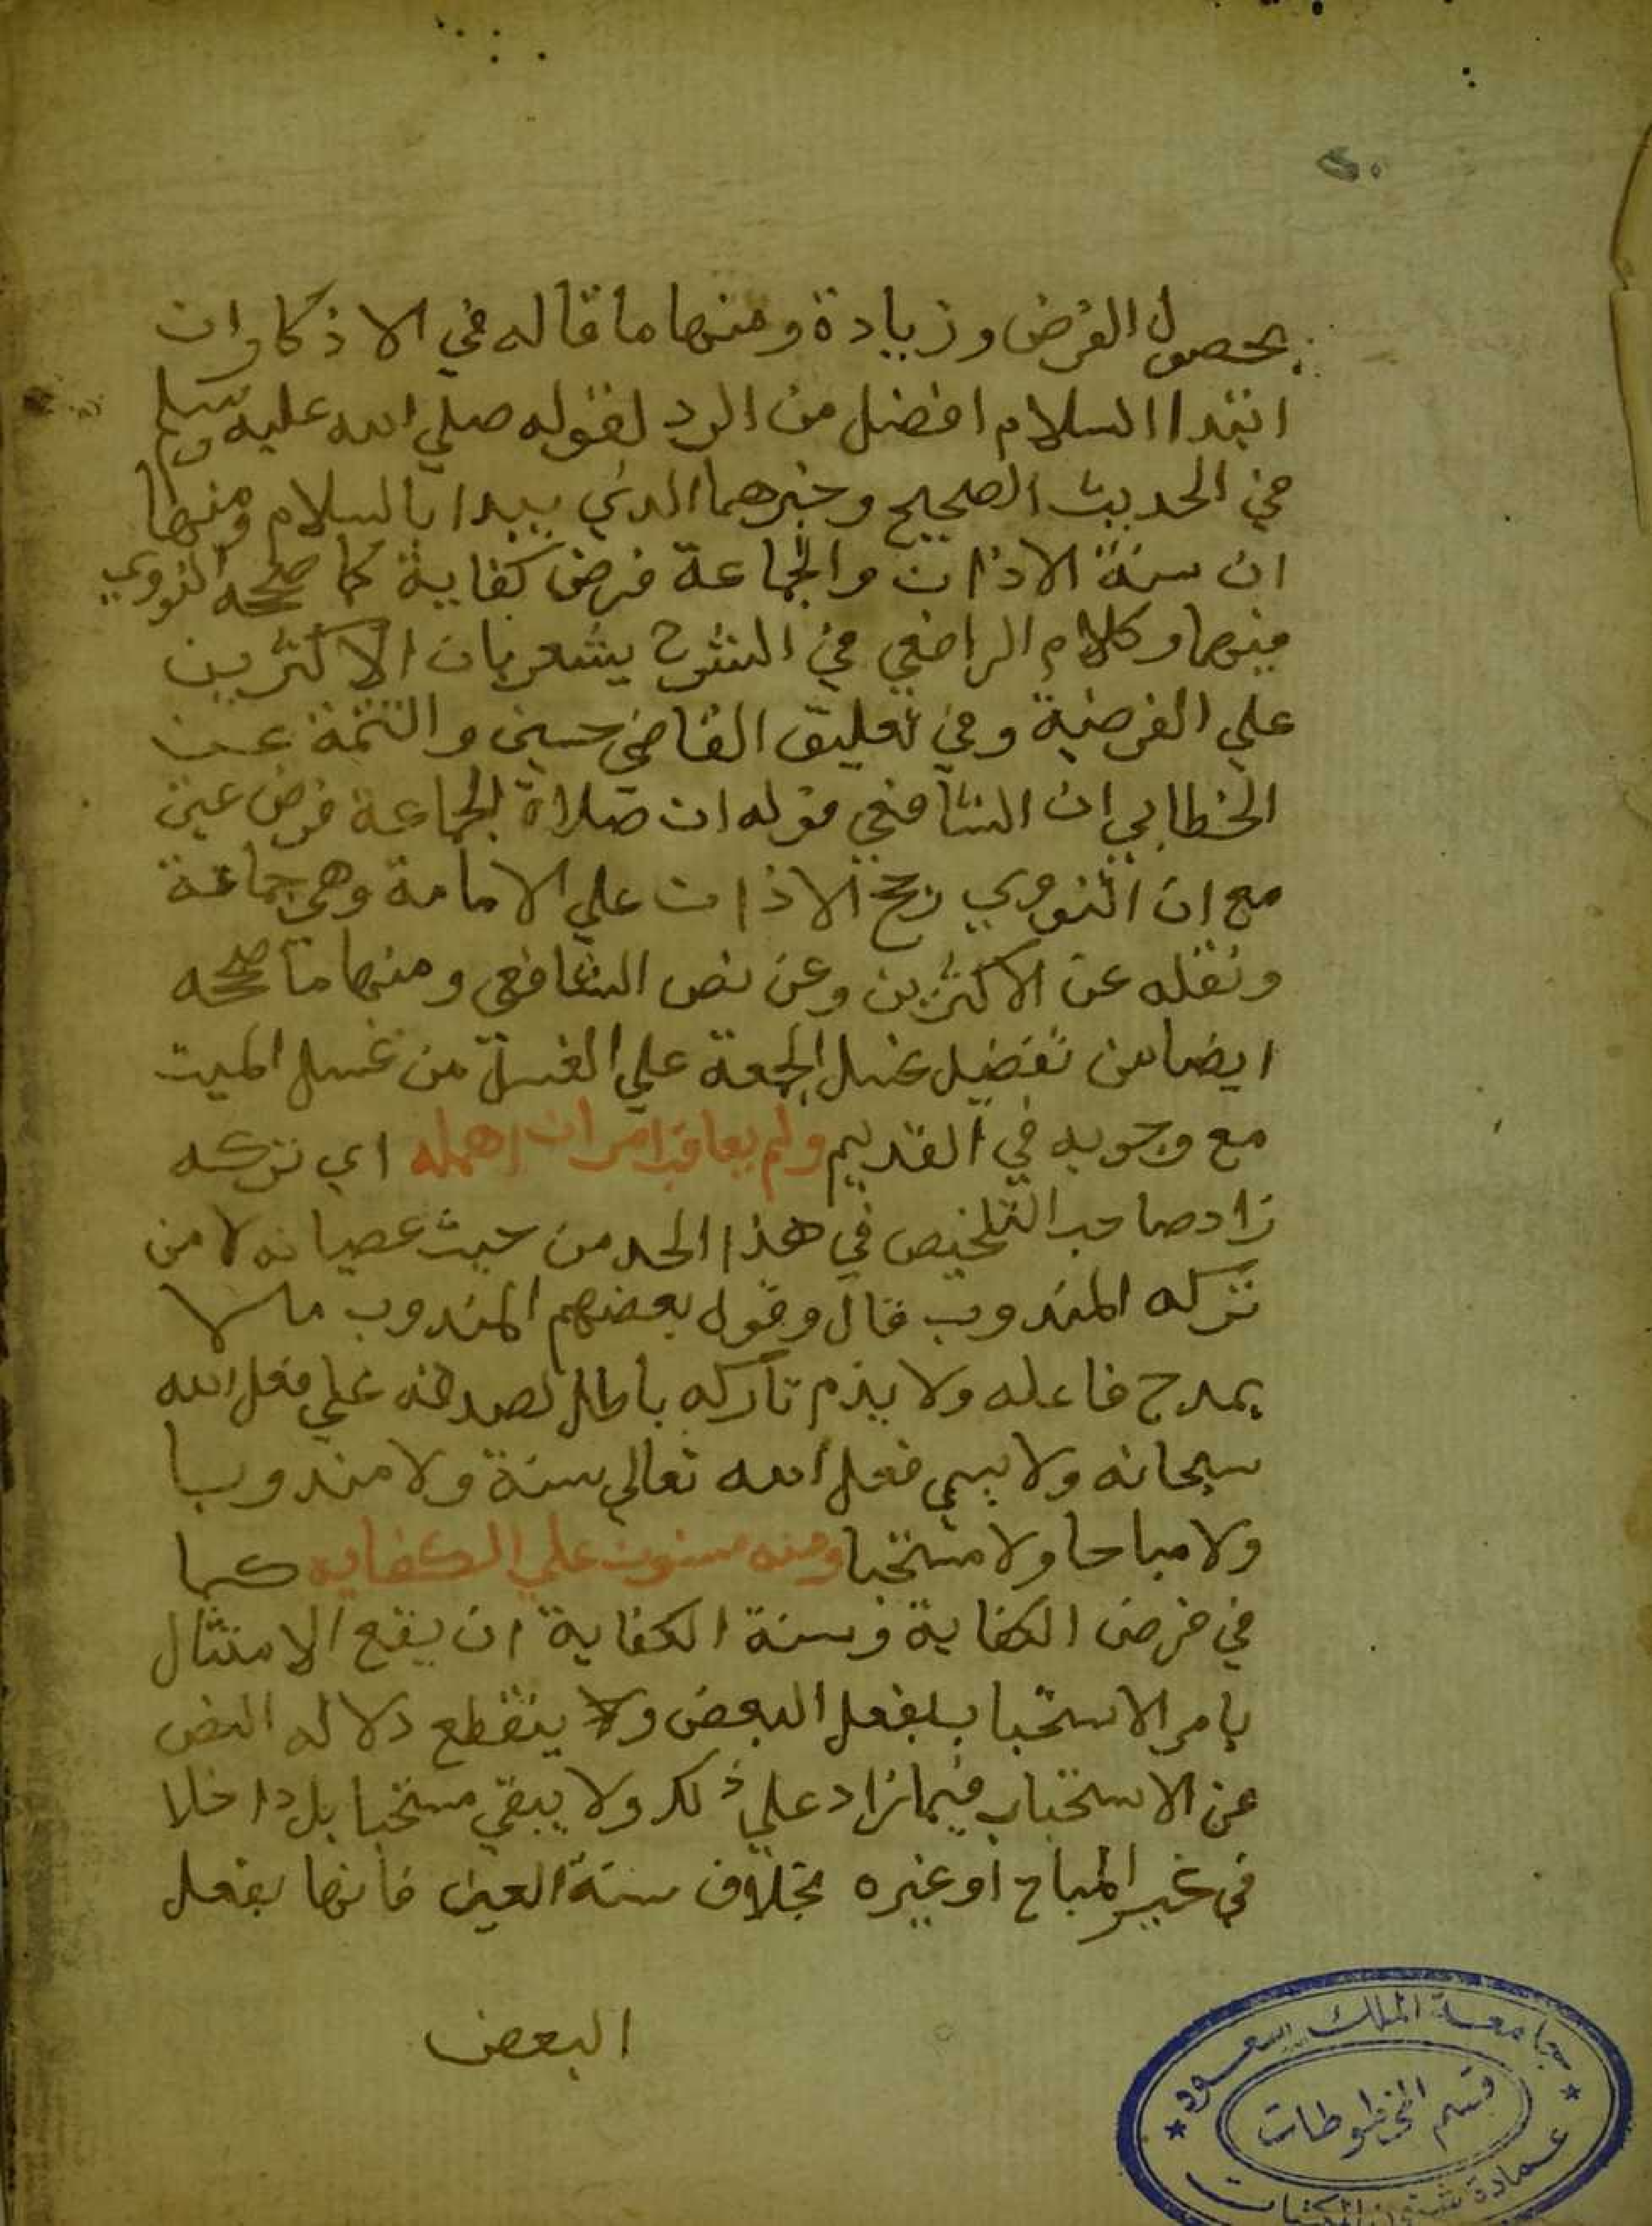 بحصول الفرض وزيادة ومنها ما قاله في الاذكار ان
ابتدا السلام افضل من الرد لقوله صلي الله عليه وسلم
في الحديث الصحيح وخيرهما الذي يبدا بالسلام ومنها
ان سنة الاذان والجماعة فرض كفاية كما صححه النووي
فيهما وكلام الرافعي في الشرح يشعر بان الاكثرين
علي الفرضية وفي تعليق القاضي حسين والتتمة عن
الخطابي ان الشافعي قوله ان صلاة الجماعة فرض عين
مع ان النووي رجح الاذان علي الامامة وهي جماعة
ونقله عن الاكثرين وعن نص الشافعي ومنها ما صححه
ايضا من تفضيل غسل الجمعة علي الغسل من غسل الميت
مع وجوبه في القديم ولم يعاقب امر ان اهمله اي تركه
زاد صاحب التلخيص في هذا الحد من حيث عصيانه لا من
تركه المندوب قال وقول بعضهم المندوب ما لا
يمدح فاعله ولا يذم تاركه باطل لصدقه علي فعل الله
سبحانه ولا يسمي فعل الله تعالي سنة ولا مندوبا
ولا مباحا ولا مستحبا ومنه مسنون علي الكفاية كما
في فرض الكفاية وسنة الكفاية ان يقع الامتثال
بامر الاستحباب بفعل البعض ولا ينقطع دلاله النص
عن الاستحباب فيما زاد علي ذلك ولا يبقي مستحبا بل داخلا
في غير المباح او غيره بخلاف سنة العين فانها بفعل
البعض
جامعة الملك سعود
قسم المخطوطات
عمادة شئون المكتبات